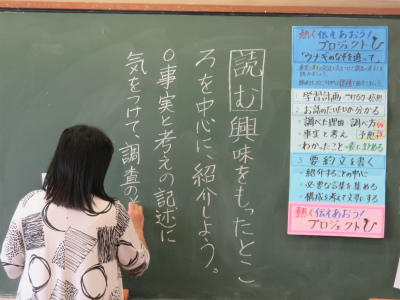 読む 興味をもったとこ
ろを中心に、紹介しよう。
○事実と考えの記述に
気をつけて、調査の
熱く伝えあおう!
プロジェクトU
「ウナギのなぞを追って」
1 学習計画
2 お話のだいたいが分かる
・調べた理由・調べ方
・事実と考え 予想
・わかったこと
3 要約文を書く
・紹介することの中心
・必要な言葉を集める
・構成を考えて文章にする
熱く伝えあおう!
プロジェクトU